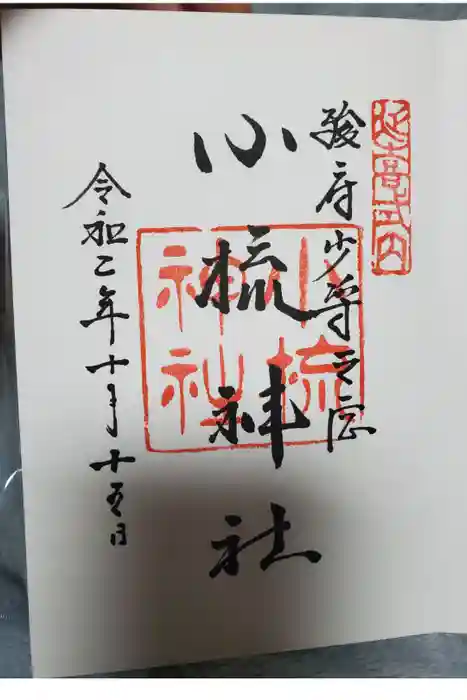 延喜式内
駿府少将之宮
小梳神社
小梳
神社
令和二年十月十五日